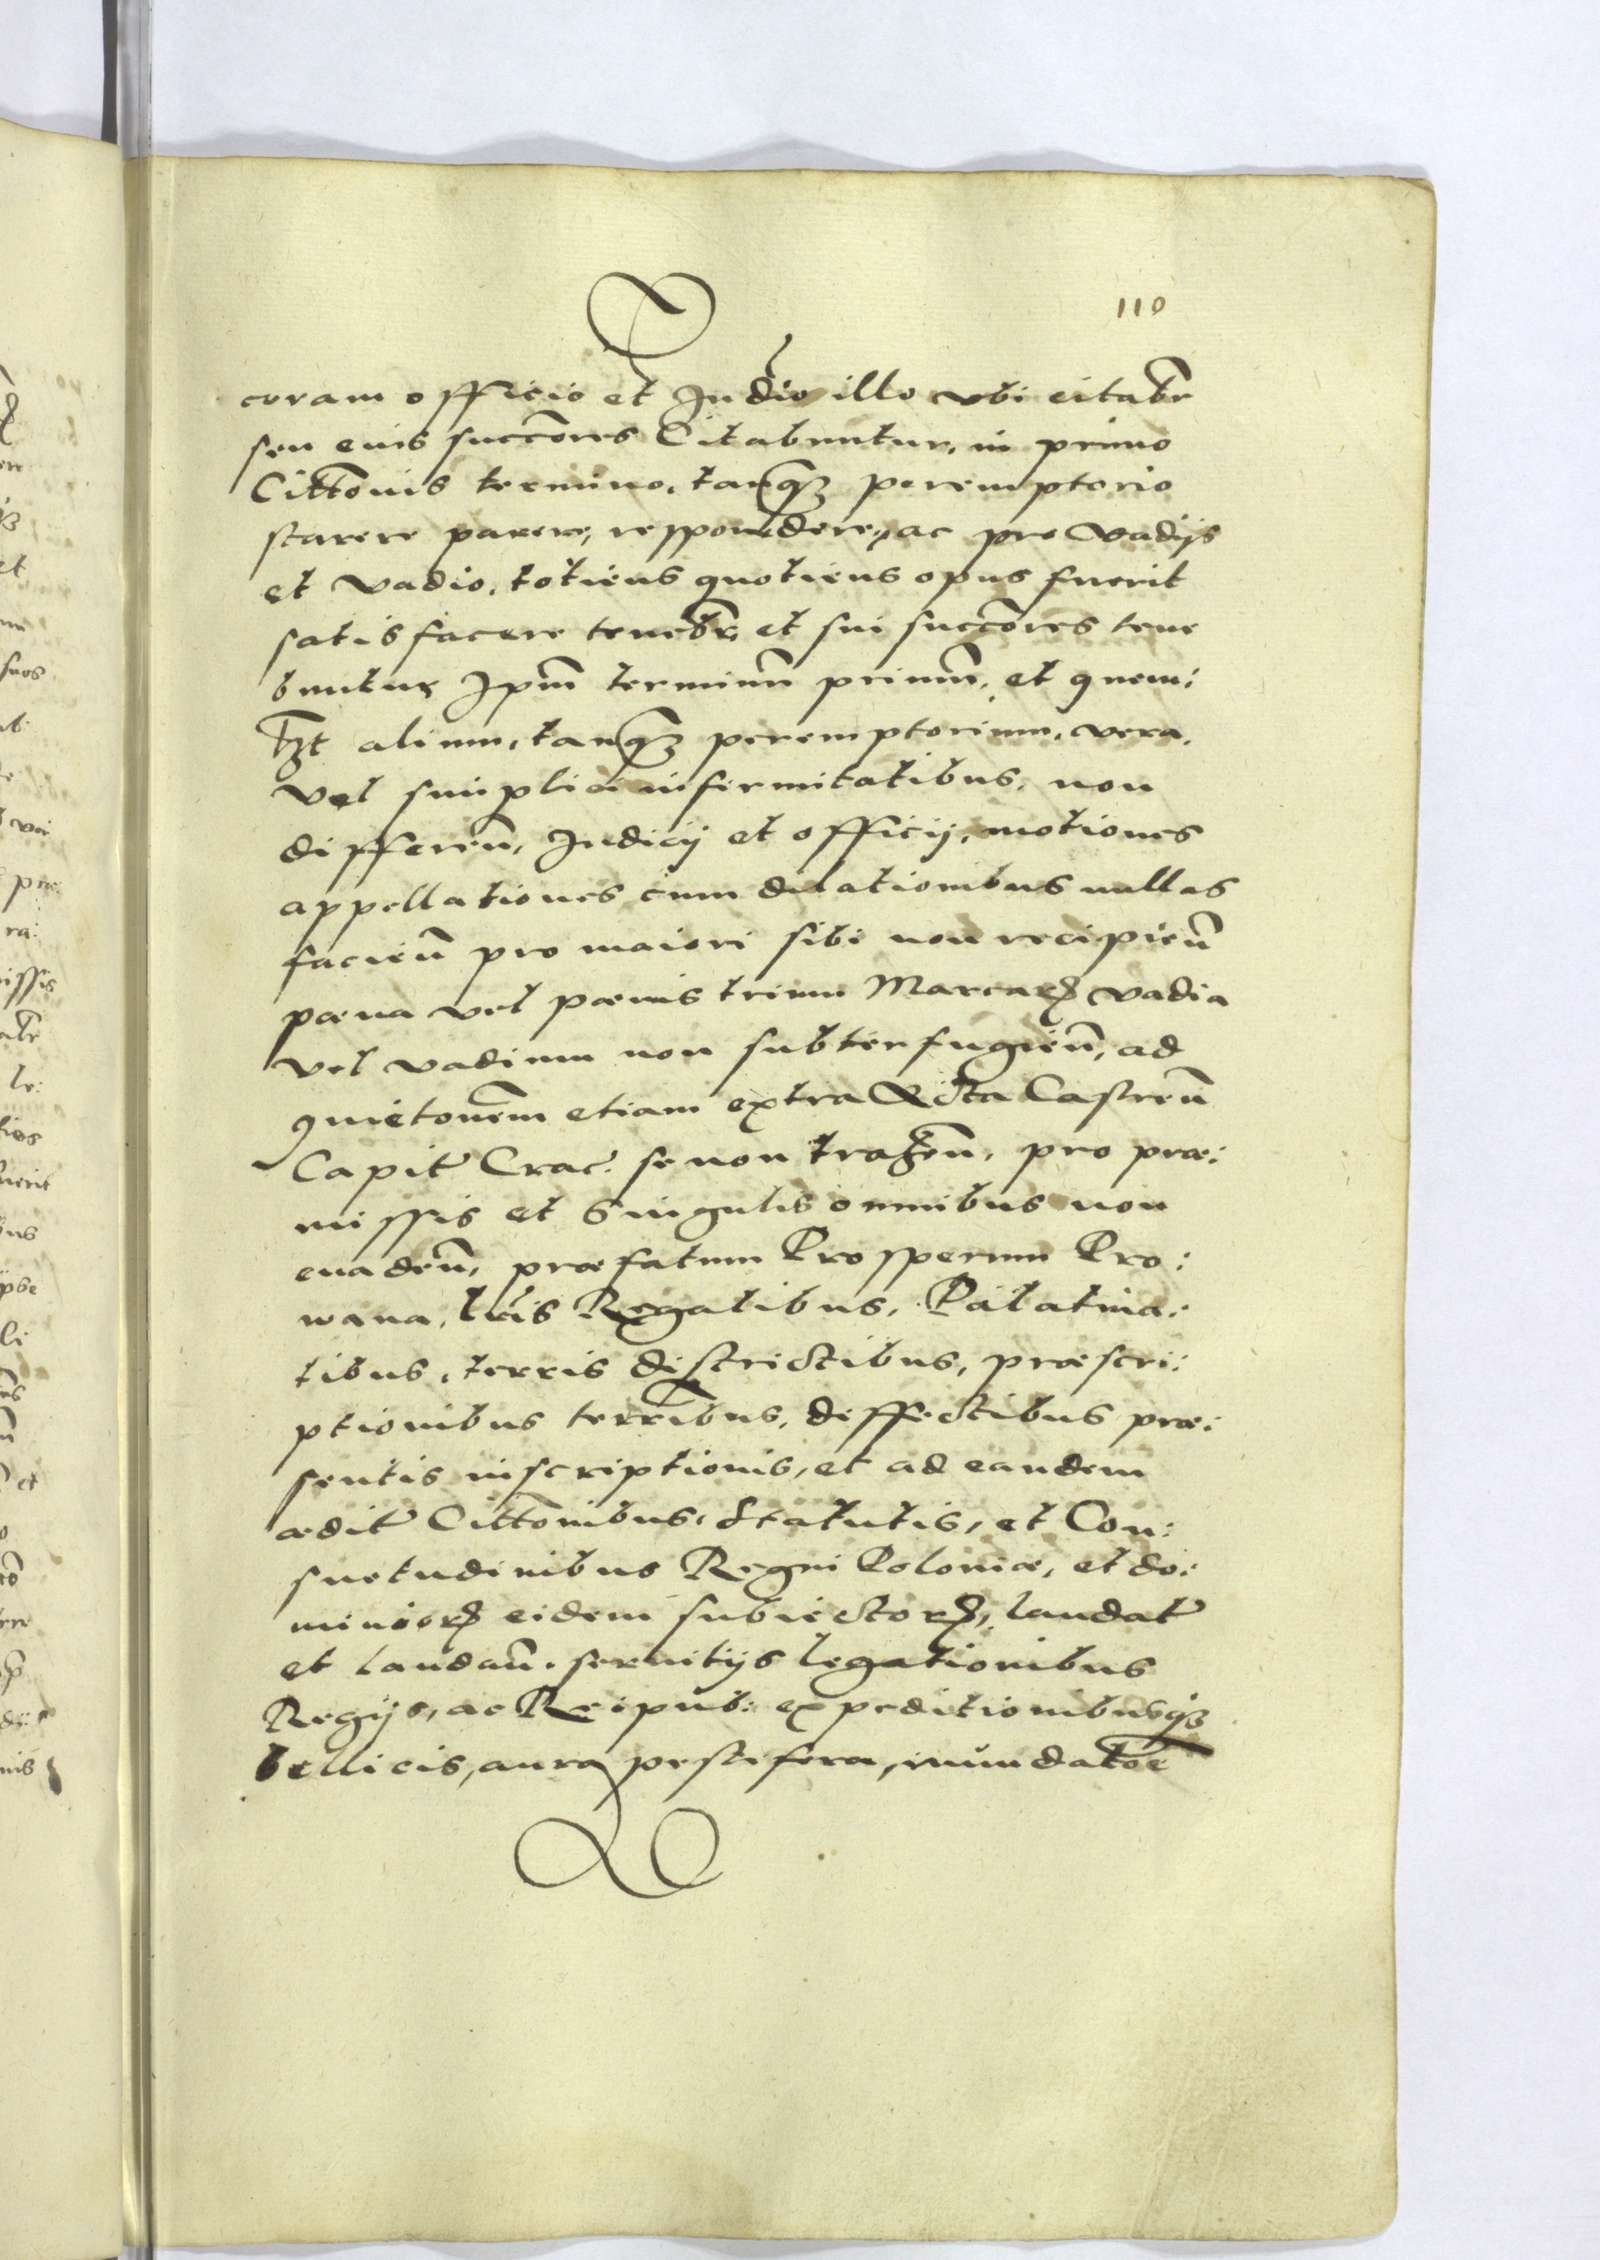 110
coram officio et Judio illo vbi citabr
seu euis succores Citabuntur, in primo
Cittonis termino, tanq₃ peremptorio
starere parere, respondere, ac pro vadijs
et vadio, totiens quotiens opus fuerit
satisfacere tenebr et sui succores tene
buntur Ipm terminū primū, et quem:
lꝫt alium, tanq₃ peremptorium, vera,
vel simplici infirmitatibus, non
differeñ, Judicij et officij, motiones
appellationes cum dilationibus nullas
facieñ pro maiori sibi non recipieñ
poena vel poenis trium Marcarꝝ vadia
vel vadium non subterfugieñ, ad
quietonem etiam extra Acta Castreñ
Capitt Crac. se non traheñ, pro præ:
missis et singulis omnibus non
euadeñ, præfatum Prosperum Pro:
wana, lris Regalibus, Palatina:
tibus, terris districtibus, præscri:
ptionibus terribus, deffectibus præ:
sentis inscriptionis, et ad eandem
æditt Cittonibus, Statutis, et Con:
suetudinibus Regni Poloniæ, et do:
miniorꝝ eidem subiectorꝝ, laudatt
et laudañ, seruitijs legationibus
Regijs, ac Reipub: expeditionibusq₃
bellicis, aura pestifera, inundatoe